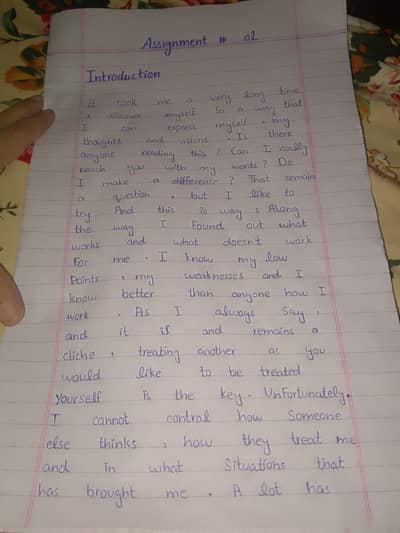 Assignment # 02
Introduction
It took me a very long time
a discover myself in a way that
I can express myself , my
thoughts and visions . Is there
anyone reading this ? Can I really
reach you with my words ? Do
I make a difference ? That remains
a question , but I like to
try. And this is way : Along
the way I found out what
works and what doesn't work
For me . I know my low
Points , my weaknesses and I
know better than anyone how I
work . As I always say ,
and it is and remains a
cliche , treating another as you
would like to be treated
yourself is the key . Unfortunately.
I cannot control how Someone
else thinks , how they treat me
and in what Situations that
has brought me . A lot has